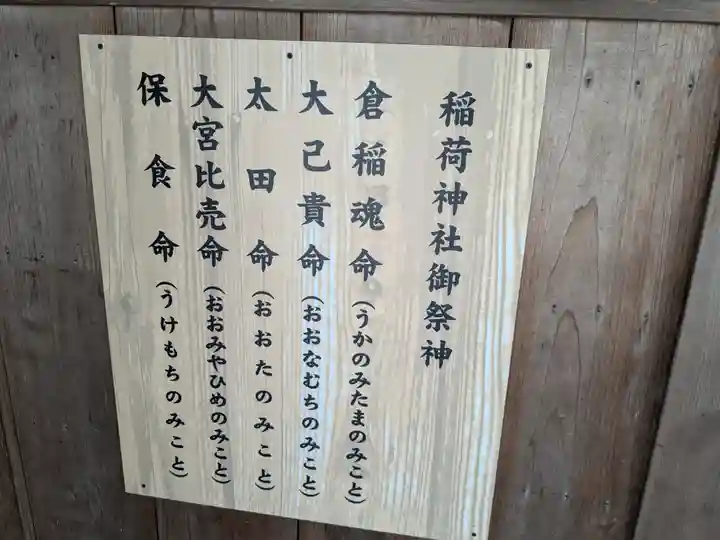 稲荷神社御祭神
倉稲魂命(うかのみたまのみこと)
大己貴命(おおなむちのみこと)
太田命(おおたのみこと)
大宮比売命(おおみやひめのみこと)
保食命(うけもちのみこと)